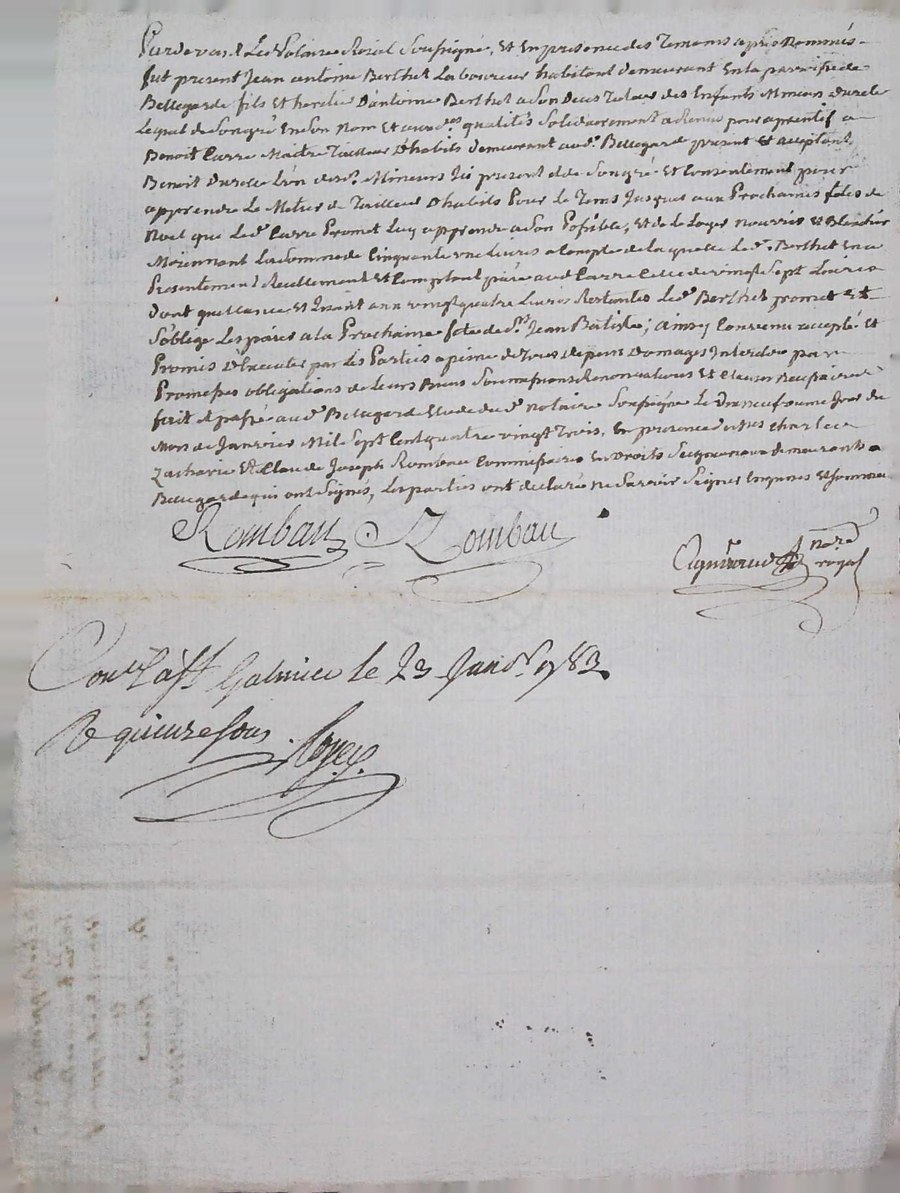 Pardevant Le Notaire Roial Soussigné, Et En presence des Temoins apres Nommés
fut present Jean antoine Berthet Laboureur habitant demeurant En la parroisse de
Bellegarde fils Et heritier D'antoine Berthet a Son Deces Tuteur des Enfants Mineurs Durelle
Lequel de Son gré En Son Nom Et auxd.es qualités Solidairement a Remis pour aprentif a
Benoit Carre Maitre Tailleur D'habits demeurant aud.t Bellegarde present Et acceptant,
Benoit Durelle L'un desd.ts Mineurs Ici present Et de Son gré Et Consentement pour
apprendre Le Metier de Tailleur D'habits Pour le Tems Jusques aux Prochaines fetes de
Noel que Led.t Carre Promet Luy apprendre a Son Possible, Et de le Loger Nourrir Et Blanchir
Moiennant La Somme de Cinquante une Livres a Compte de laquelle Led.t Berthet En a
Presentement Reellement Et Comptant paié aud.t Carre Celle de vingt Sept Livres
Dont quittance Et Quant aux vingt quatre Livres Restantes Led.t Berthet promet Et
S'oblige Les paier a la Prochaine fete de St Jean Batiste; ainsy Convenu accepté Et
Promis D'Executer par Les Parties a peine de Tous depens Domages Interets par
Promesses obligations de Leurs Biens Soumissions Renonciations Et Clauses
fait Et passé aud.t Bellegarde Etude dud.t Notaire Soussigné Le Jour du
Mois de Janvier Mil Sept Cent quatre vingt Trois, En presence de Mes Charles
Zacharie Et Claude Joseph Rombau Commissaires En Droits Seigneuriaux demeurants a
Bellegarde qui ont Signés, Les parties ont declaré ne Savoir Signer Enquises Et Sommées
Rombau Rombau
no.re royal
Con.lé a St Galmier le 23 Janv.r 1783
Reçu quinze sous